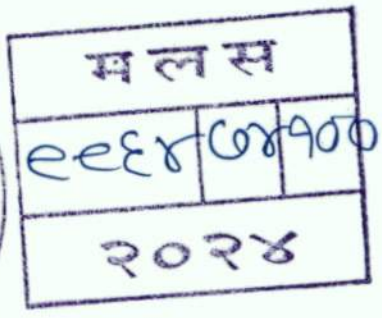 म ल स
९९६४ ७४ १००
२०२४